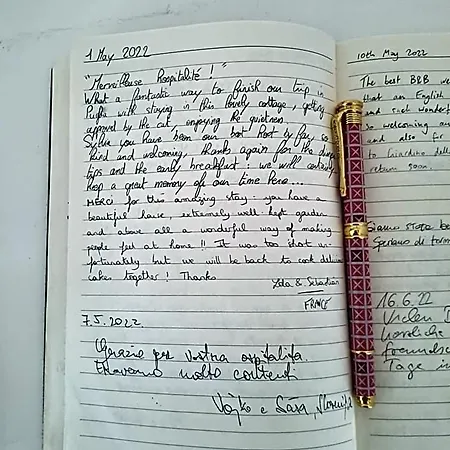 1 May 2022
"Merveilleuse Hospitalité! "
What a fantastic way to finish our trip in
Puglia with staying in this lovely cottage, getting
approved by the cat, enjoying the quietness.
you have been our best host by far, so
kind and welcoming, thanks again for the
tips and the early breakfast: we will certainly
keep a great memory of our time here...
MERCI for this amazing stay: you have a
beautiful house, extremely well kept garden
and above all a wonderful way of making
people feel at home!! It was too short un-
fortunately but we will be back to cook
cakes together! Thanks
& Sebastian
FRANCE
7.5.2022.
Grazie per vostra ospitalita.
Eravamo molto contenti
Vojko e Sára,
10th May 2022
The best B&B we
that an English
and such wonder
so welcoming a
and also for
to Giardino dell
return soon.
Siamo state be
Speriamo di torn
16.6.22
Vielen
herzliche
freundsc
Tage in